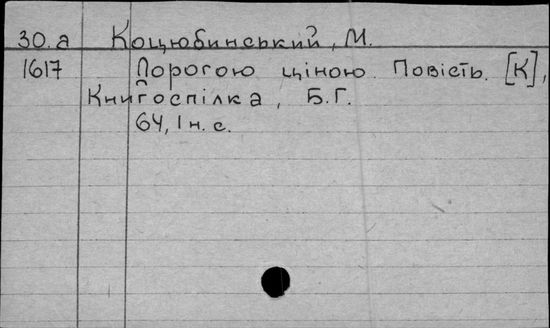 30.а Коцюбинський, М.
1617 Дорогою ціною. Повість. [К],
Книгоспілка, Б.Г.
64, 1 н. с.